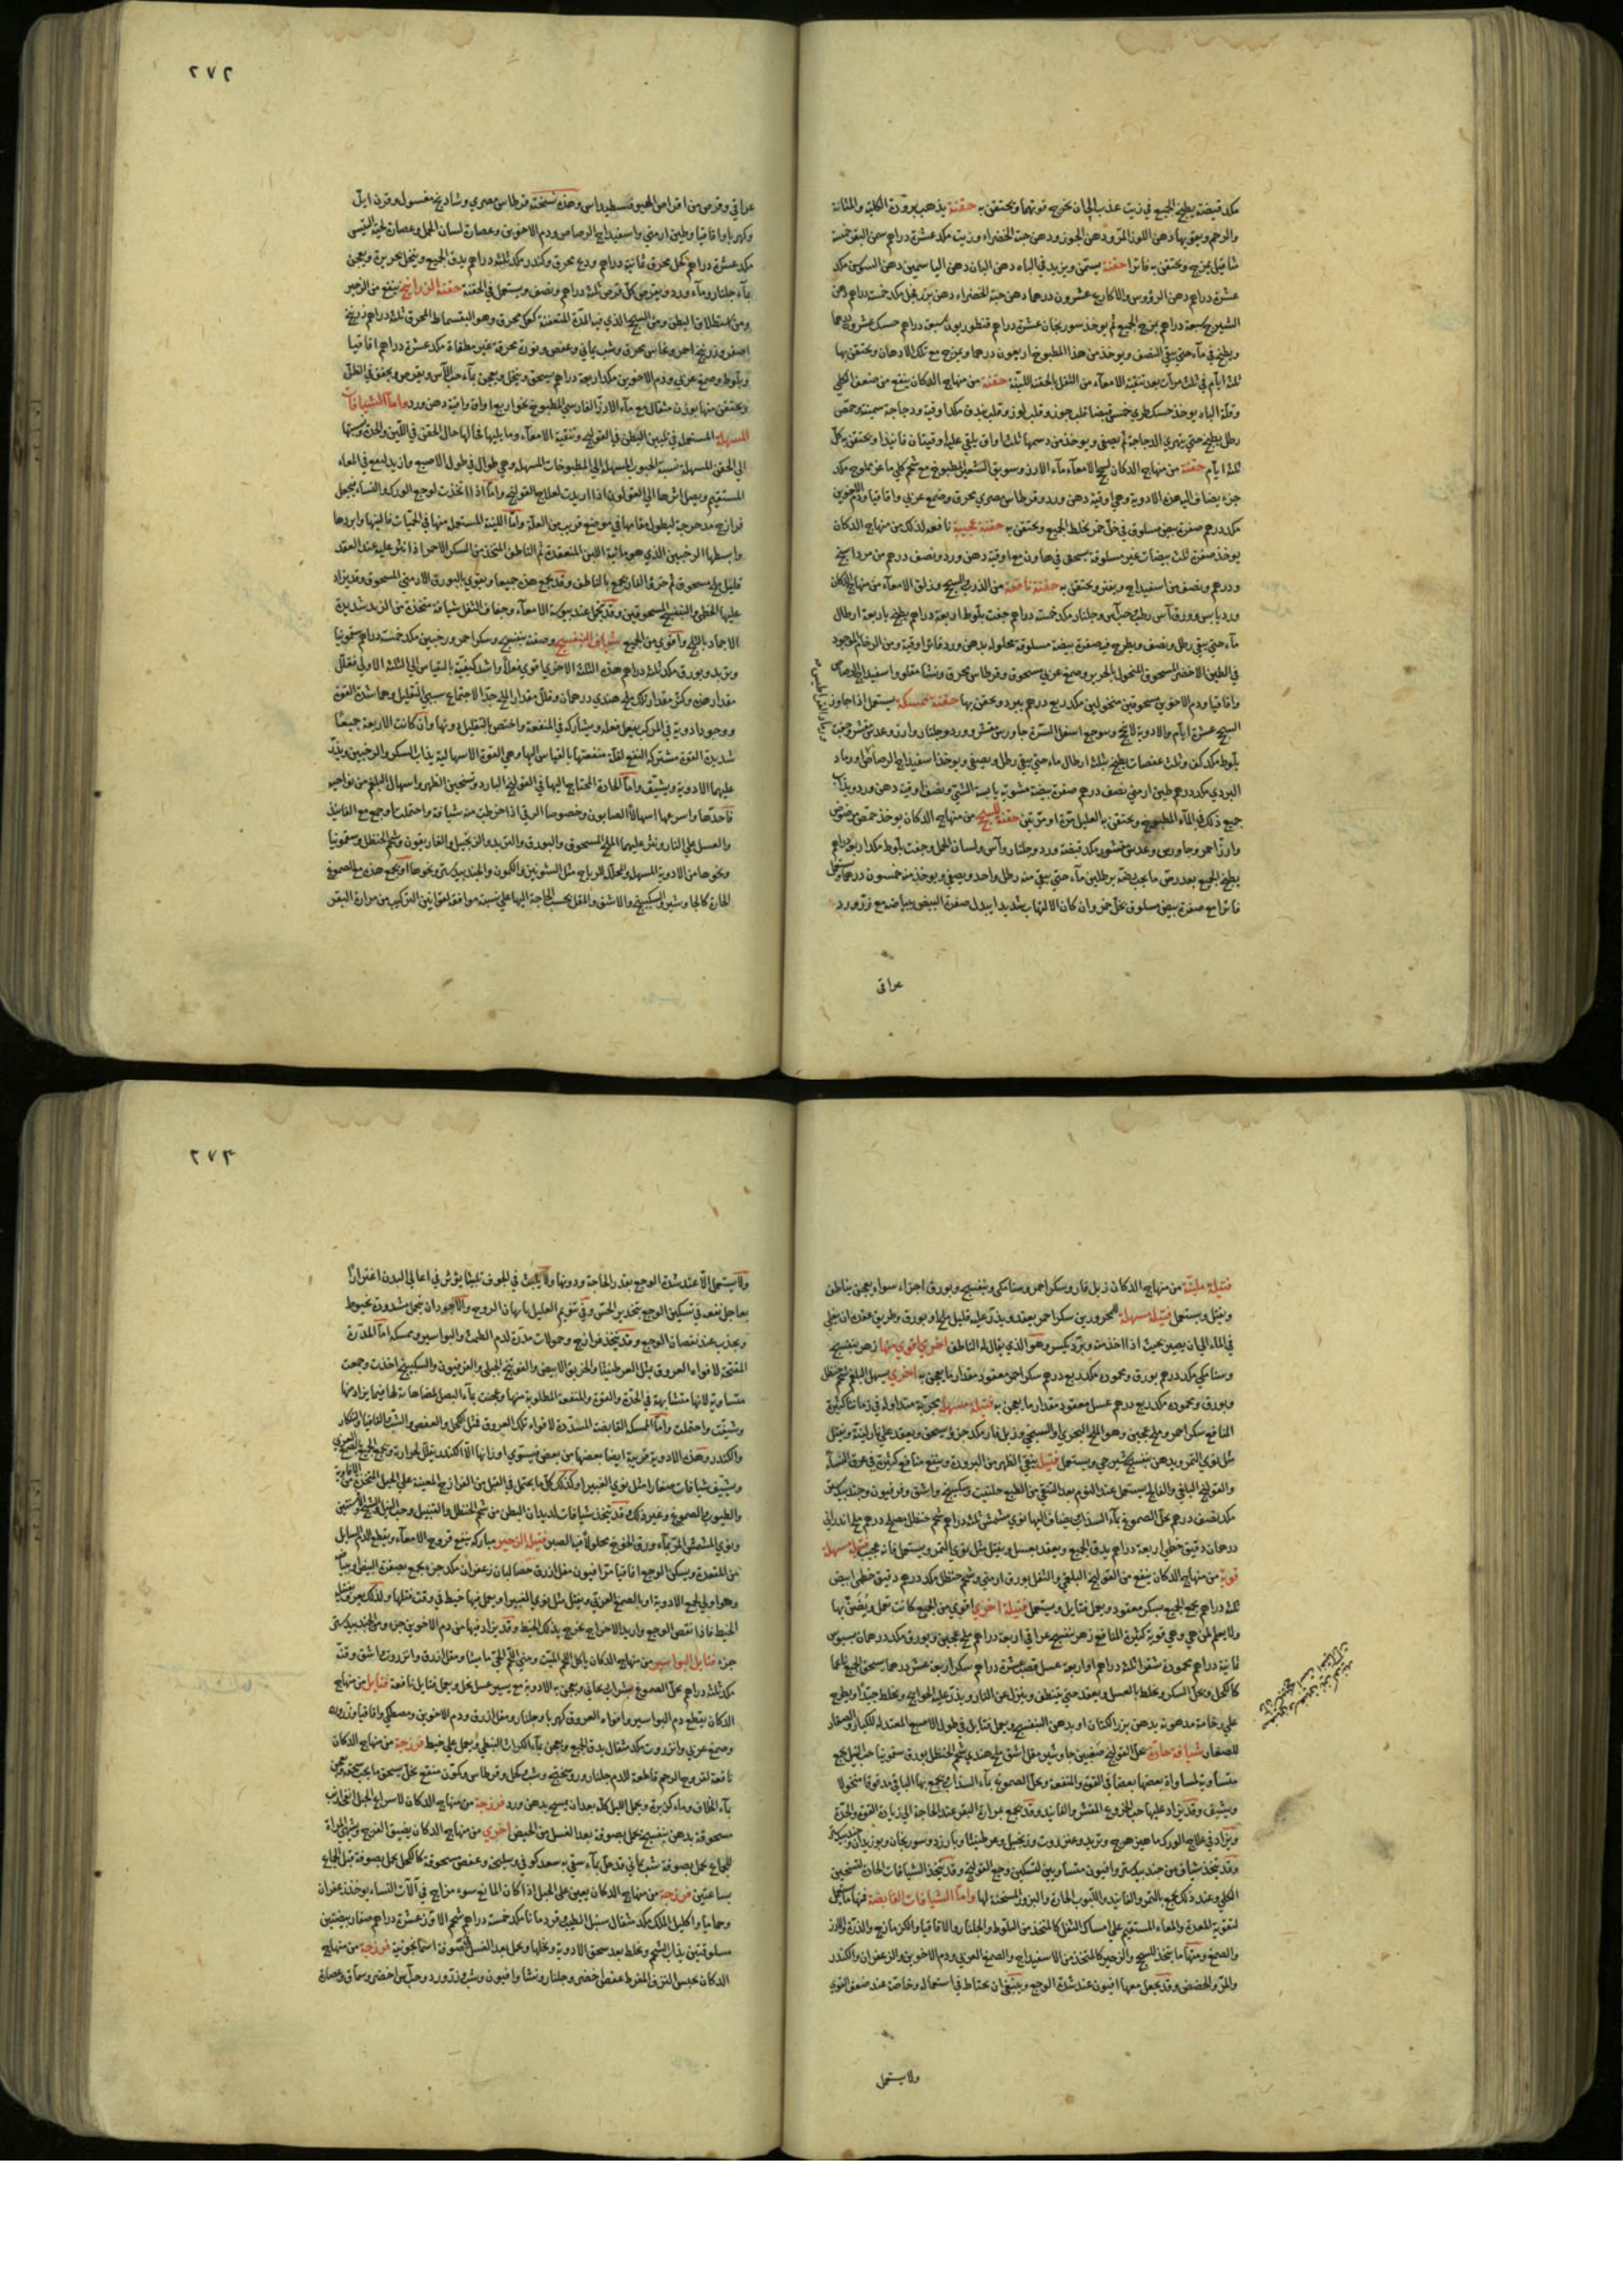 مكد قبضة يطبخ الجميع في زيت عذب الى ان يخرج قوتها ويحتقن به حقنة يذهب برودة الكلية والمثانة
والرحم ويعق بها دهن اللوز المر ودهن الجوز ودهن حبة الخضراء وزيت مكد عشرة دراهم سمن البقر خمسة
مثاقيل يمزج ويحتقن به فاترا حقنة يسمن ويزيد في الباه دهن البان دهن الياسمين دهن السوسن مكد
عشرة دراهم دهن الرؤوس والاكارع عشرون درهما دهن حبة الخضراء دهن مكد خمسة دراهم دهن
الشيرج سبعة دراهم يمزج الجميع ثم يوخذ سورنجان عشرة دراهم قنطوريون سبعة دراهم حسك عشرون درهما
ويطبخ في ماء حتى يبقى النصف ويوخذ من هذا المطبوخ اربعون درهما ويمزج مع تلك الادهان ويحتقن بها
ثلثة ايام في ثلث مرات بعد تنقية الامعاء من الثفل بالحقنة اللينة حقنة من منهاج الدكان ينفع من ضعف الكلى
وقلة الباه يوخذ حسك طري خمس قبضا قلب جوز وقلب لوز وقلب بندق مكد اوقية ودجاجة سمينة وحمص
رطل يطبخ حتى يتهرى الدجاجة ثم يصفى ويوخذ من دسمها ثلث اواق يلقى عليه اوقيتان فانيذا ويحتقن به كل
ثلثة ايام حقنة من منهاج الدكان لسحج الامعاء ماء الارز وسويق الشعير المطبوخ مع شحم كلى ماعز مملوح مكد
جزء يضاف اليه من الادوية وهي اوقية دهن ورد وقرطاس مصري محرق وصمغ عربي واقاقيا ودم الاخوين
مكد درهم صفرة بيض مسلوق في خل خمر يخلط الجميع ويحتقن به حقنة عجيبة نافعه لذلك من منهاج الدكان
يوخذ صفرة ثلث بيضات غير مسلوقة يسحق في هاون مع اوقية دهن ورد ونصف درهم من مرداسنج
ودرهم ونصف من اسفيداج ويفتر ويحتقن به حقنة نافعة من الذرب والسحج وزلق الامعاء من منهاج الدكان
ورد يابس وورق آس رطب حب آس وجلنار مكد خمسة دراهم جفت بلوط اربعة دراهم يطبخ باربعة ارطال
ماء حتى يبقى رطل ونصف ويطرح فيه صفرة بيضة مسلوقة محلوله بدهن ورد فاترا اوقية ومن الرخام الموجود
في الطين الاخضر المسحوق المنخول بالحرير وصمغ عربي مسحوق وقرطاس محرق ونشا مقلو واسفيداج الرصاص
واقاقيا ودم الاخوين مسحوقين منخولين مكد ربع درهم يبرد ويحقن بها حقنة ممسكه يستعمل اذا جاوز
السحج عشرة ايام والادوية لا تنجح وموجع اسفل السرة جاورس مقشر وورد وجلنار وارز وعدس مقشر وجفت
بلوط مكد كف وثلث عفصات يطبخ بثلثة ارطال ماء حتى يبقى رطل ويصفى ويوخذ اسفيداج الرصاص ورماد
البردي مكد درهم طين ارمني نصف درهم صفرة بيضة مشوية يابسة الشي ونصف اوقية دهن ورد ويذاب
جميع ذلك في الماء المطبوخ ويحتقن به العليل مرة او مرتين حقنة للسحج من منهاج الدكان يوخذ حمص مرضوض
وارز احمر وجاورس وعدس مقشور مكد قبضة ورد وجلنار وآس ولسان الحمل وجفت بلوط مكد اربعة دراهم
يطبخ الجميع بعد رض ما يجب رضه برطلين ماء حتى يبقى منه رطل واحد ويصفى ويوخذ منه خمسون درهما ويحمل
فاترا مع صفرة بيض مسلوق بخل خمر وان كان الالتهاب شديدا يبدل صفرة البيض ببياضه مع زر ورد
عراقي
٢٧٢
عراقي وقرص من اقراص وهذه نسخته قرطاس مصري وشادنج مغسول وقرن ايل
وكهربا واقاقيا وطين ارمني واسفيداج الرصاص ودم الاخوين وعصارة لسان الحمل وعصارة لحية التيس
مكد عشرة دراهم كحل محرق ثمانية دراهم وودع محرق وكندر مكد ثلثة دراهم يدق الجميع وينخل بحريرة ويعجن
بماء جلنار وماء ورد ويقرص كل قرص ثلثة دراهم ونصف ويستعمل في الحقنة حقنة الزرانيخ ينفع من الزحير
ومن استطلاق البطن ومن السحج الذي فيه المدة المتعفنة كعك محرق وهو البقسماط المحرق ثلثة دراهم زرنيخ
اصفر وزرنيخ احمر ونحاس محرق وشب يماني وعفص ونورة محرقة غير مطفاة مكد عشرة دراهم اقاقيا
وبلوط وصمغ عربي ودم الاخوين مكد اربعة دراهم يسحق وينخل ويعجن بماء حب الآس ويقرص ويجفف في الظل
ويحتقن منها بوزن مثقال مع ماء الارز الفارسي المطبوخ نحو اربع اواق واوقية دهن ورد واما الشيافات
المسهلة المستعمل في تليين البطن في القولنج وتنقية الامعاء وما يليها فحالها حال الحقن في اللين والحدة ونسبتها
الى الحقن المسهلة نسبة الحبوب المسهلة الى المطبوخات المسهلة وهي طوال في طول الاصبع وازيد ليقع في المعاء
المستقيم ويصل اثرها الى القولون اذا اريدت لعلاج القولنج واما اذا اتخذت لوجع الورك والنساء فيجعل
فرازج مدحرجة ليطول مقامها في موضع قريب من العلة واما اللينة المستعمل منها في الحميات فالينها وابردها
وابسطها الترنجبين الذي هو مائية اللبن المنعقدة ثم الناطف المتخذ من السكر الاحمر اذا نثر عليه عند العقد
قليل ملح مسحوق ثم خرؤ الفار يجمع بالناطف وقد يجمع هذه جميعا ويقوى بالبورق الارمني المسحوق وقد يزاد
عليها الخطمي والبنفسج المسحوقين وقد يتحمل عند يبوسة الامعاء وجفاف الثفل شيافة متخذة من الزبد شديدة
الاجماد بالثلج واقوى من الجميع شياف البنفسج وصفته بنفسج وسكر احمر وترنجبين مكد خمسة دراهم سقمونيا
وتربد وبورق مكد ثلثة دراهم هذه الثلثة الاخرى اقوى فعلا واشد كيفية بالقياس الى الثلثة الاولى فقلل
مقدار هذه وكثر مقدار تلك ملح هندي درهمان وقلل مقدار الملح جدا لاجتماع سببي التقليل وهما شدة القوة
ووجود ادوية في المركب يفعل فعله ويشاركه في المنفعة واختص بالتقليل دونها وان كانت الاربعة جميعا
شديدة القوة مشتركة النفع لقلة منفعتها بالقياس اليها وهي القوة الاسهالية يذاب السكر والترنجبين ويذر
عليهما الادوية ويشيف واما الحارة المحتاج اليها في القولنج البارد وتسخين الظهر واسهال البلغم من نواحيه
فاحدها واسرعها اسهالا الصابون وخصوصا الرقي اذا خرطت منه شيافة واحتملت او جمع مع الفانيذ
والعسل على النار ونثر عليهما الملح المسحوق والبورق والتربد والزنجبيل والغاريقون وشحم الحنظل وسقمونيا
ونحوها من الادوية المسهلة والمحللة للرياح مثل الشونيز والكمون والجندبيدستر ونحوها او يجمع هذه مع الصموغ
الحارة كالجاوشير والسكبينج والاشق والمقل بحسب الحاجة اليها على نسبة موافقة لقوانين التركيب من مرارة البقر
فتيلة ملينة من منهاج الدكان زبل فار وسكر احمر وسنامكي وبنفسج وبورق اجزاء سواء يعجن بناطف
ويفتل ويستعمل فتيله مسهلة للمحرورين سكر احمر يعقد ويذر عليه قليل ملح او بورق وطريق عقده ان يغلى
في الماء الى ان يصير بحيث اذا اخذت وبرد يكسر وهو الذي يقال له الناطف اخرى اقوى منها زهر بنفسج
وسنامكي مكد درهم بورق ومحموده مكد ربع درهم سكر احمر معقود مقدار ما يعجن به اخرى يسهل البلغم شحم حنظل
وبورق ومحموده مكد ربع درهم عسل معقود مقدار ما يعجن به فتيلة مسهلة مجربة متداولة في زماننا كثيرة
المنافع سكر احمر وملح عجين وهو الملح البحري او السبخي وزبل فار مكد جزؤ يسحق ويعقد على نار لينة ويفتل
مثل نوى التمر ويدهن بنفسج شيرجي ويستعمل فتيل ينقي الظهر من البرودة وينفع منافع كثيرة في عرق النساء
والقولنج الباقي والفالج يستعمل عند النوم بعد التنقي من الطبع حلتيت وسكبينج واشق وفرفيون وجندبيدستر
مكد نصف درهم بحل الصموغ بماء السذاب يضاف اليها نوى مشمش ثلثة دراهم شحم حنظل مصلح درهم ملح اندراني
درهمان دقيق خطمي اربعة دراهم يدق الجميع ويعقد بعسل ويفتل مثل نوى التمر ويستعمل فانه عجيب فتيلة مسهلة
قوية من منهاج الدكان ينفع من القولنج البلغمي والثفل بورق ارمني وشحم حنظل مكد درهم دقيق خطمي ابيض
ثلثة دراهم يجمع الجميع بسكر معقود ويعمل فتايل ويستعمل فتيلة اخرى اقوى من الجميع كانت تعمل ويضن بها
ولا يعلم لمن هي وهي قوية كثيرة المنافع زهر بنفسج عراقي اربعة دراهم ملح عجين وبورق مكد درهمان سبوس
ثمانية دراهم محمودة شقرا ثلثة دراهم او اربعة عسل قصب عشرة دراهم سكر اربعة عشر درهما يسحق الجميع ناعما
كالكحل ويحل السكر ويخلط بالعسل ويعقد حتى ينطف وينزل عن النار ويذر عليه الحوائج ويخلط جيدا ويطرح
على رخامة مدهونة بدهن بزر الكتان او بدهن البنفسج ويعمل فتايل في طول الاصبع المعتدلة للكبار والصغار
للصغار شيافة حارة بحل القولنج صعبين جاوشير مقل اشق ملح هندي شحم الحنظل بورق سقمونيا حب النيل يجمع
متساوية لمساواة بعضها بعضا في القوة والمنفعة ويحل الصموغ بماء السذاب يجمع بها الباقي مدقوقا منخولا
ويشيف وقد يزاد عليها حب الخروع المقشر والفانيد وقد يجمع بمرارة البقر عند الحاجة الى زيادة القوة والحدة
ويزاد في علاج الورك ماهيزهرج وتربد وعنزروت وزنجبيل وعرطنيثا وبارزد وسورنجان وبوزيدان وجندبيدستر
وقد يتخذ شياف من جندبيدستر وافيون متساويين لتسكين وجع القولنج وقد يتخذ الشيافات الحارة لتسخين
الكلى وعند ذلك يجمع بالتمر والفانيد واللبوب الحارة والبزور المسخنة لها واما الشيافات القابضة فمنها ما يتحمل
لتقوية المعدة والمعاء المستقيم على امساك الثفل كالمتخذ من البلوط والجلنار والاقاقيا والكزمازج والذرة والارز
والصمغ ومنها ما يتخذ للسحج والزحير كالمتخذ من الاسفيداج والصمغ العربي ودم الاخوين والزعفران والكندر
والمر والحضض وقد يجعل معها افيون عند شدة الوجع وينبغي ان يحتاط في استعماله وخاصة عند ضعف القوى
ولا يستعمل
٢٧٣
ولا يستعمل الا عند شدة الوجع بقدر الحاجة ودونها ولا يلبث في الجوف تلبيثا يؤثر في اعالي البدن اغترارا
بعاجل نفعه في تسكين الوجع بتخدير الحس وفي تنويم العليل بانهاك الروح والاجود ان يتحمل مشدودة بخيوط
ويجذب عند نقصان الوجع وقد يتخذ فرازج وحمولات مدرة لدم الطمث والبواسير وممسكة اما المدرة
المفتحة لافواه العروق مثل العرطنيثا والخربق الابيض والفوتنج الجبلي والفرفيون والسكبينج اخذت وجمعت
متساوية لانها متشابهة في الحدة والقوة والمنفعة المطلوبة منها وعجنت بماء البصل لمضاهاته لها فيما يراد منها
وشيفت واحتملت واما الممسكة القابضة المسددة لافواه تلك العروق فمثل الكحل والعفص والشب والقاقيا والجلنار
والكندر وهذه الادوية قريبة ايضا بعضها من بعض فيستوي اوزانها الا الكندر يقلل لحرارته ويجمع الجميع الصمغ العربي
ويشيف شيافات صغارا مثل نوى الغبيرا وكذلك كل ما يحتمل في القبل من الفرازج المعينة على الحبل المتخذة من
والطيوب والصموغ وغير ذلك وقد يتخذ شيافات لديدان البطن من شحم الحنظل والقنبيل وحب النيل والشيح والافسنتين
ونوى المشمش المر بماء ورق الخوخ محلولا فيها الصبر فتيلة الزحير مباركة ينفع قروح الامعاء ويقطع الدم السايل
من المقعدة ويسكن الوجع اقاقيا مر افيون مقل ازرق حصا لبان زعفران مكد جزء يجمع بصفرة البيض او بياضه
وهو اولى لجمع الادوية او بالصمغ العربي ويفتل مثل نوى الغبيرا ويعمل فيها خيط في وقت فتلها
الخيط فاذا نقص الوجع واريد الاخراج يخرج بذلك الخيط وقد يزاد فيها من دم الاخوين جزء ومن الجندبيدستر
جزء فتايل البواسير من منهاج الدكان ياكل اللحم الميت وينبت اللحم الحي ماميثا ومقل ازرق وانزروت واشق وقنه
مكد ثلثة دراهم بحل الصموغ بشراب ريحاني ويعجن به الادوية مع يسير عسل نحل ويعمل فتايل نافعة فتايل من منهاج
الدكان يقطع دم البواسير وافواه العروق كهربا وجلنار ومقل ازرق ودم الاخوين ومصطكي واقاقيا وزر ورد
وصمغ عربي وانزروت مكد مثقال يدق الجميع ويعجن بماء الكراث النبطي ويعمل على خيط فرزجة من منهاج الدكان
نافعة لقروح الرحم قاطعة للدم جلنار وشب وكحل وقرطاس
بماء الخلاف وماء كزبرة ويحمل الليل كله بعد ان يمسح بدهن ورد فرزجة من منهاج الدكان لاسراع الحبل
مسحوقة بدهن بنفسج يحمل بصوفة بعد الغسل من الحيض اخرى من منهاج الدكان يضيق الفرج ويهيئ المراة
للجماع يحمل بصوفة شب يماني قد حل بماء سقي به سعد كوفي وسليخة وعفص مسحوقة كالكحل يحمل بصوفة قبل الجماع
بساعتين فرزجة من منهاج الدكان يعين على الحبل اذا كان المانع سوء مزاج في آلات النساء يوخذ زعفران
وحماما واكليل الملك مكد مثقال سنبل الطيب قردمانا مكد خمسة دراهم شحم الاوز عشرة دراهم صفار بيضتين
مسلوقتين يذاب الشحم ويخلط بعد سحق الادوية ونخلها ويحمل بعد الغسل بصوفة اسمانجونية فرزجة من منهاج
الدكان يحبس النزف المفرط عفص اخضر وجلنار ونشا وافيون وشب وزر ورد وحب آس اخضر وسماق وعصارة